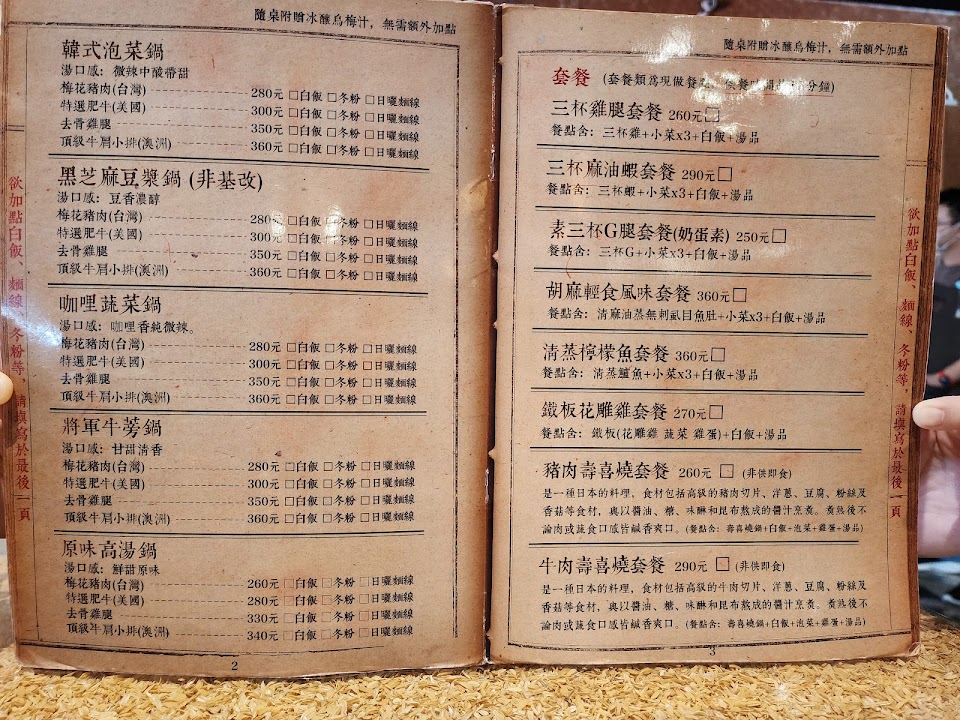 隨桌附贈冰釀烏梅汁，無需額外加點
韓式泡菜鍋
湯口感：微辣中酸帶甜
梅花豬肉(台灣) 280元 □白飯 □冬粉 □日曬麵線
特選肥牛(美國) 300元 □白飯 □冬粉 □日曬麵線
去骨雞腿 350元 □白飯 □冬粉 □日曬麵線
頂級牛肩小排(澳洲) 360元 □白飯 □冬粉 □日曬麵線
黑芝麻豆漿鍋 (非基改)
湯口感：豆香濃醇
梅花豬肉(台灣) 280元 □白飯 □冬粉 □日曬麵線
特選肥牛(美國) 300元 □白飯 □冬粉 □日曬麵線
去骨雞腿 350元 □白飯 □冬粉 □日曬麵線
頂級牛肩小排(澳洲) 360元 □白飯 □冬粉 □日曬麵線
咖哩蔬菜鍋
湯口感：咖哩香純微辣。
梅花豬肉(台灣) 280元 □白飯 □冬粉 □日曬麵線
特選肥牛(美國) 300元 □白飯 □冬粉 □日曬麵線
去骨雞腿 350元 □白飯 □冬粉 □日曬麵線
頂級牛肩小排(澳洲) 360元 □白飯 □冬粉 □日曬麵線
將軍牛蒡鍋
湯口感：甘甜清香
梅花豬肉(台灣) 280元 □白飯 □冬粉 □日曬麵線
特選肥牛(美國) 300元 □白飯 □冬粉 □日曬麵線
去骨雞腿 350元 □白飯 □冬粉 □日曬麵線
頂級牛肩小排(澳洲) 360元 □白飯 □冬粉 □日曬麵線
原味高湯鍋
湯口感：鮮甜原味
梅花豬肉(台灣) 260元 □白飯 □冬粉 □日曬麵線
特選肥牛(美國) 280元 □白飯 □冬粉 □日曬麵線
去骨雞腿 330元 □白飯 □冬粉 □日曬麵線
頂級牛肩小排(澳洲) 340元 □白飯 □冬粉 □日曬麵線
欲加點白飯、麵線、冬粉等，請填寫於最後一頁
2
隨桌附贈冰釀烏梅汁，無需額外加點
套餐 (套餐類為現做餐點，候餐時間 分鐘)
三杯雞腿套餐 260元□
餐點含：三杯雞+小菜x3+白飯+湯品
三杯麻油蝦套餐 290元□
餐點含：三杯蝦+小菜x3+白飯+湯品
素三杯G腿套餐(奶蛋素) 250元□
餐點含：三杯G+小菜x3+白飯+湯品
胡麻輕食風味套餐 360元□
餐點含：清麻油蒸無刺虱目魚肚+小菜x3+白飯+湯品
清蒸檸檬魚套餐 360元□
餐點含：清蒸鱸魚+小菜x3+白飯+湯品
鐵板花雕雞套餐 270元□
餐點含：鐵板(花雕雞 蔬菜 雞蛋)+白飯+湯品
豬肉壽喜燒套餐 260元 □ (非供即食)
是一種日本的料理，食材包括高級的豬肉切片、洋蔥、豆腐、粉絲及
香菇等食材，與以醬油、糖、味醂和昆布熬成的醬汁烹煮。煮熟後不
論肉或蔬食口感皆鹹香爽口。(餐點含：壽喜燒鍋+白飯+泡菜+雞蛋+湯品)
牛肉壽喜燒套餐 290元 □ (非供即食)
是一種日本的料理，食材包括高級的牛肉切片、洋蔥、豆腐、粉絲及
香菇等食材，與以醬油、糖、味醂和昆布熬成的醬汁烹煮。煮熟後不
論肉或蔬食口感皆鹹香爽口。(餐點含：壽喜燒鍋+白飯+泡菜+雞蛋+湯品)
欲加點白飯、麵線、冬粉等，請填寫於最後一頁
3